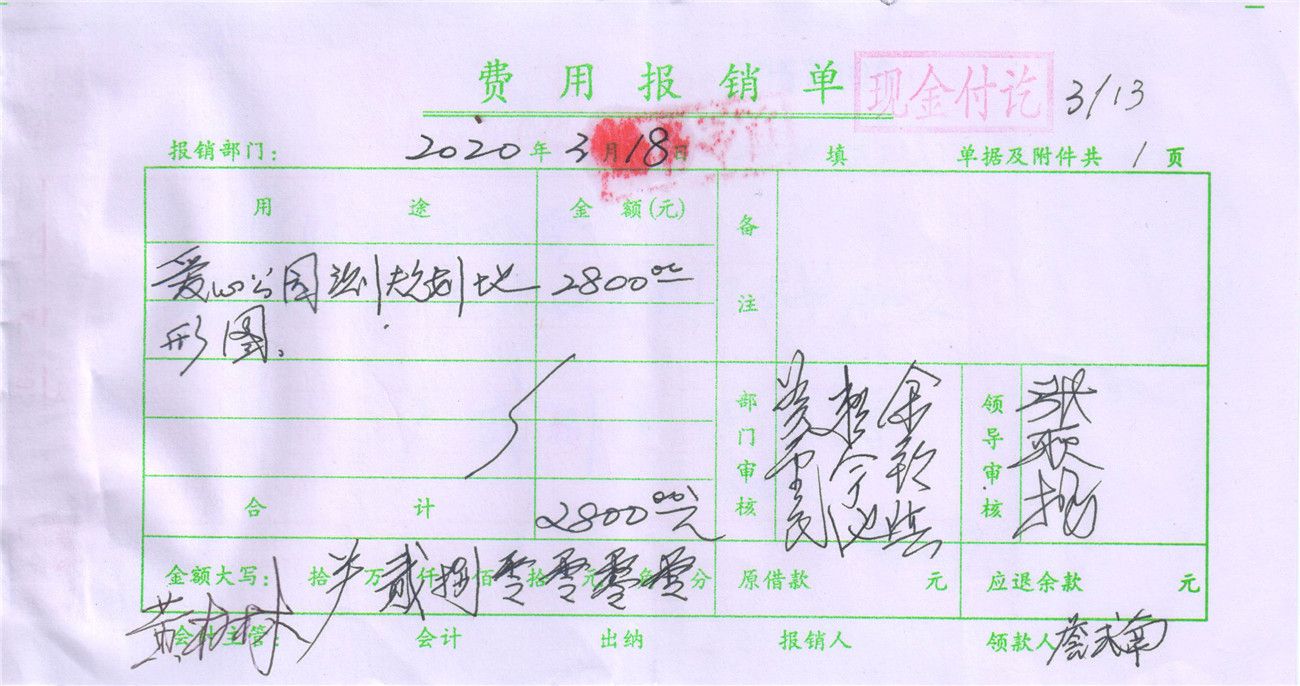 费用报销单
现金付讫
3/13
报销部门： 2020年3月18日 填 单据及附件共 1 页
用途 金额(元) 备注
爱心公园测规划地 2800.00
形图。
部门审核 领导审核
合计 2800.00元
金额大写： 拾万贰仟捌佰零拾零元零角零分 原借款 元 应退余款 元
会计主管： 会计 出纳 报销人 领款人